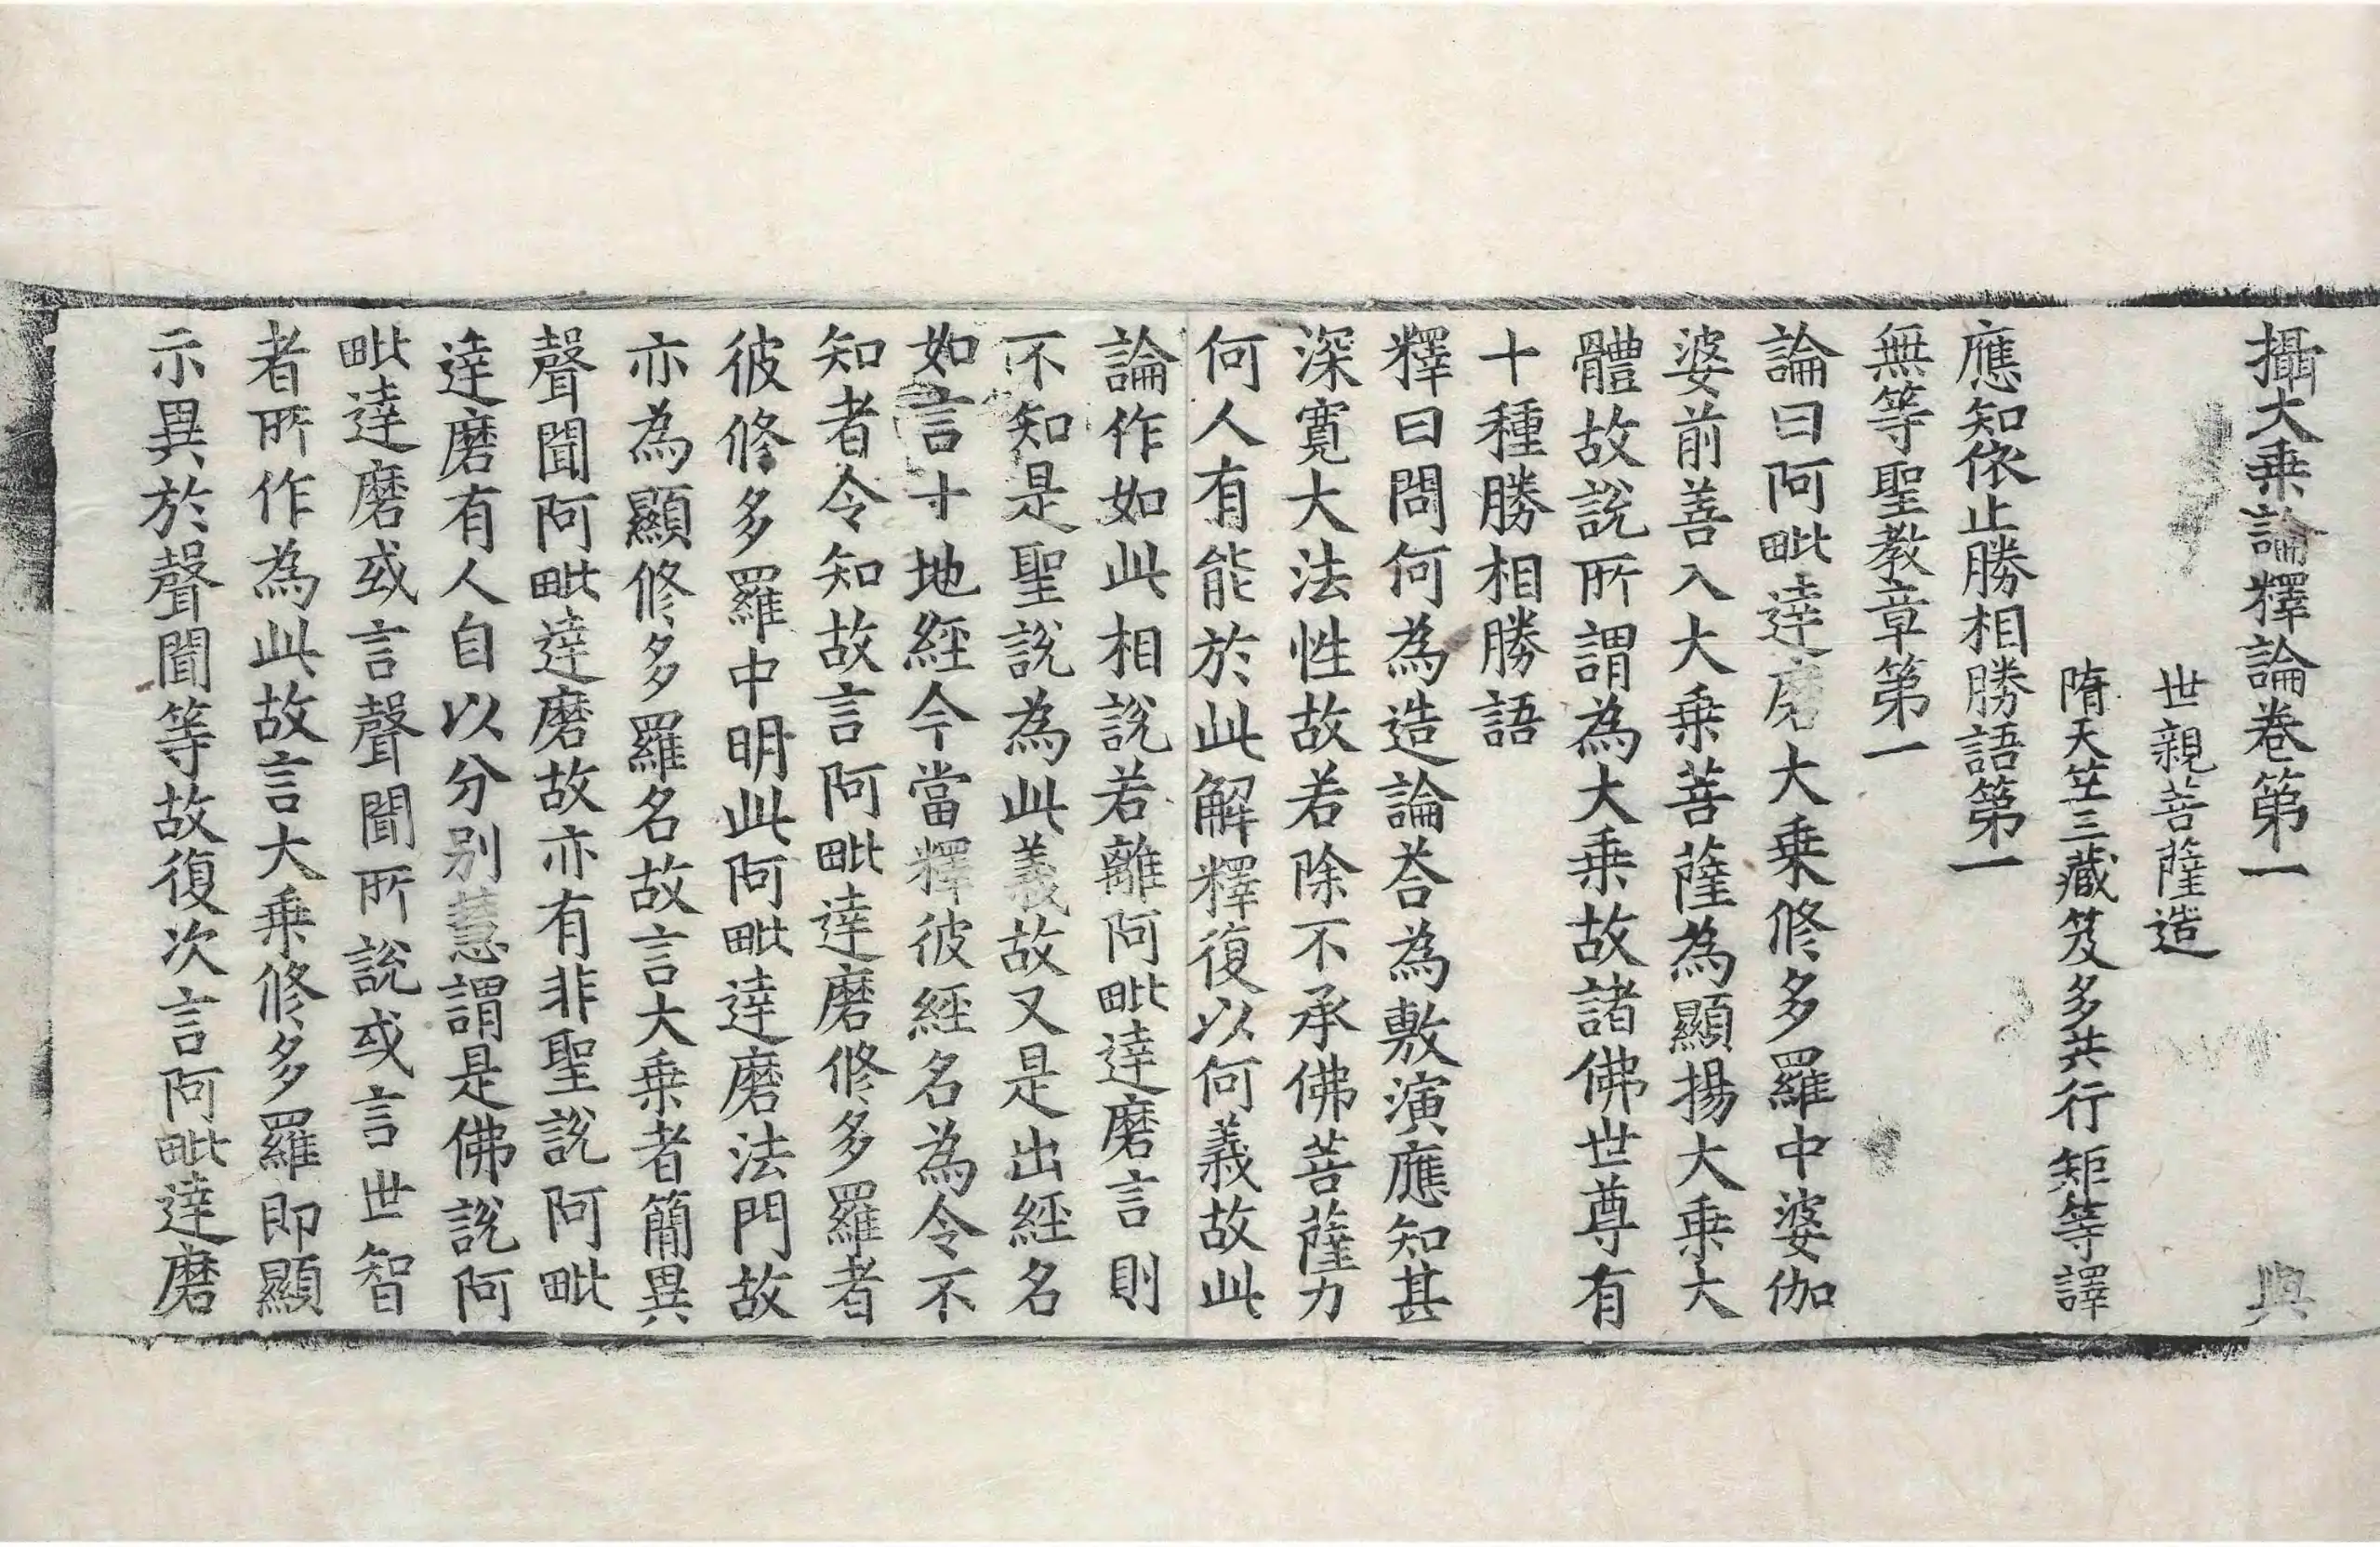 攝大乘論釋論卷第一 與
世親菩薩造
隋天竺三藏笈多共行矩等譯
應知依止勝相勝語第一
無等聖教章第一
論曰阿毗達磨大乘修多羅中婆伽
婆前善入大乘菩薩為顯揚大乘大
體故說所謂為大乘故諸佛世尊有
十種勝相勝語
釋曰問何為造論荅為敷演應知甚
深寬大法性故若除不承佛菩薩力
何人有能於此解釋復以何義故此
論作如此相說若離阿毗達磨言則
不知是聖說為此義故又是出經名
如言十地經今當釋彼經名為令不
知者令知故言阿毗達磨修多羅者
彼修多羅中明此阿毗達磨法門故
亦為顯修多羅名故言大乘者簡異
聲聞阿毗達磨故亦有非聖說阿毗
達磨有人自以分別慧謂是佛說阿
毗達磨或言聲聞所說或言世智
者所作為此故言大乘修多羅即顯
示異於聲聞等故復次言阿毗達磨